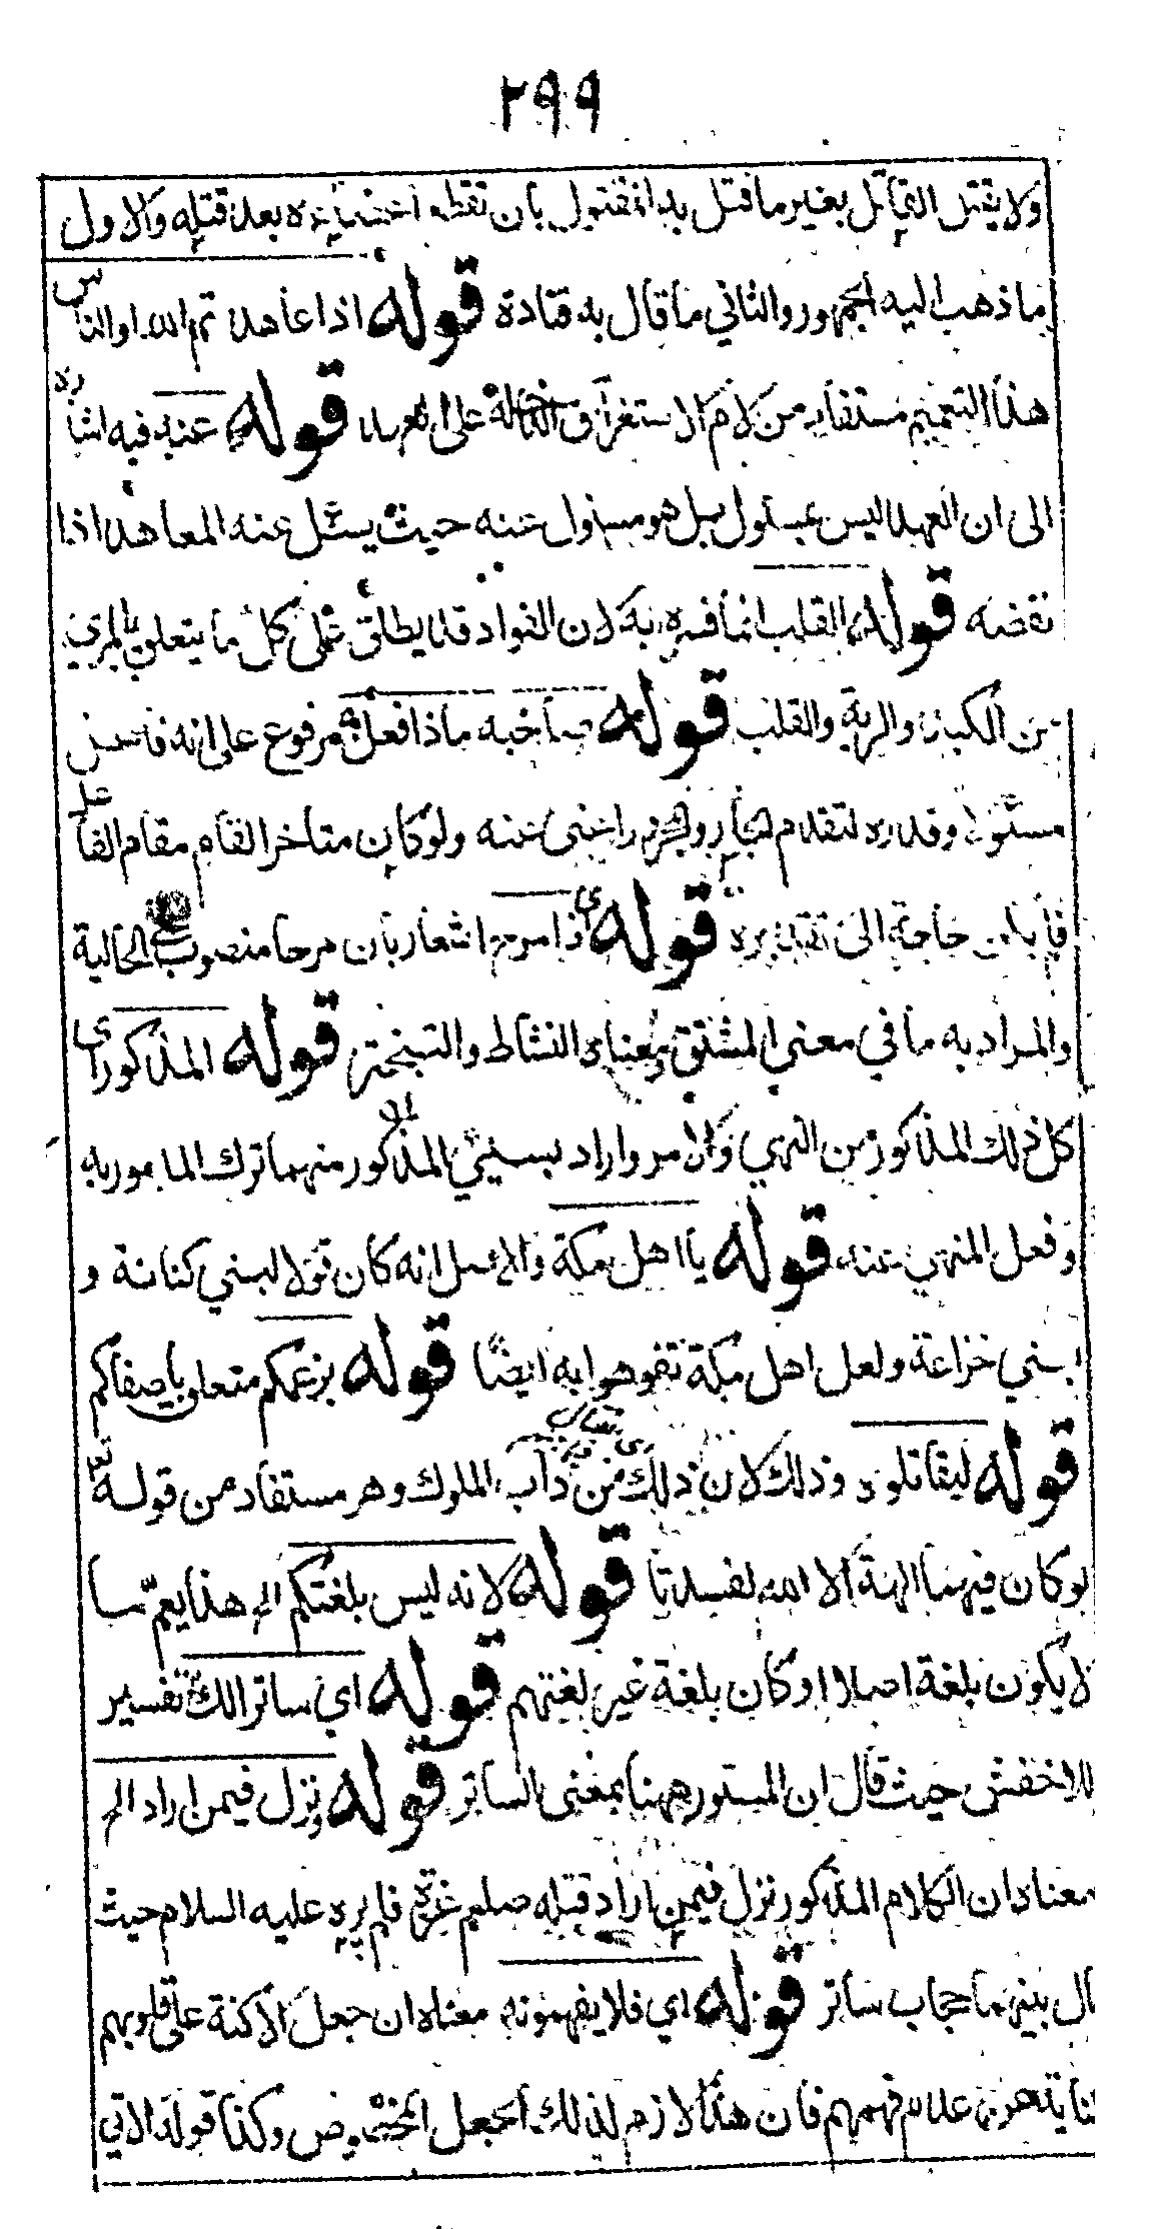 ٢٩٩
ولا يقتل القاتل بغير ما قتل به المقتول بان تقطع بعد قتله والاول
ما ذهب اليه الجمهور والثاني ما قال به قتادة قوله اذا عاهدتم الله او الناس
هذا التعميم مستفاد من كلام الاستغراق الداخلة على العهد قوله عنه فيه اشارة
الى ان العهد ليس بمسئول بل هو مسئول عنه حيث يسئل عنه المعاهد اذا
نقضه قوله القلب انما فسره به لان الفواد قد يطلق على كل ما يتعلق بالمري
من الكبد والرية والقلب قوله صاحبه ماذا فعل به مرفوع على انه فاعل
مسئولا وقدره لتقدم الجار والمجرور اعنى عنه ولو كان متاخرا لقام مقام الفاعل
فاي حاجة الى تقديره قوله اي ذا مرح اشعار بان مرحا منصوب على الحالية
والمراد به ما في معنى المشتق ومعناه النشاط والتبختر قوله المذكور اي
كل ذلك المذكور من النهي والامر واراد بسيئ المذكور منهما ترك المامور به
وفعل المنهي عنه قوله يا اهل مكة والاصل انه كان قولا لبني كنانة و
بني خزاعة ولعل اهل مكة تفوهوا به ايضا قوله بزعمكم متعلق باصفاكم
قوله ليقاتلوه وذلك لان ذلك من دأب الملوك وهو مستفاد من قوله تعه
لو كان فيهما الهة الا الله لفسدتا قوله لانه ليس بلغتكم الخ هذا يعم ما
لا يكون بلغة اصلا او كان بلغة غير لغتهم قوله اي ساترا لك تفسير
للاخفش حيث قال ان المستور ههنا بمعنى الساتر قوله ونزل فيمن اراد الخ
معناه ان الكلام المذكور نزل فيمن اراد قتله صلعم غرة فلم يره عليه السلام حيث
حال بينهما حجاب ساتر قوله اي فلا يفهمونه معناه ان جعل الاكنة على قلوبهم
عدم فهمهم فان هذا لازم لذلك الجعل المخصوص وكذا قوله الاتي